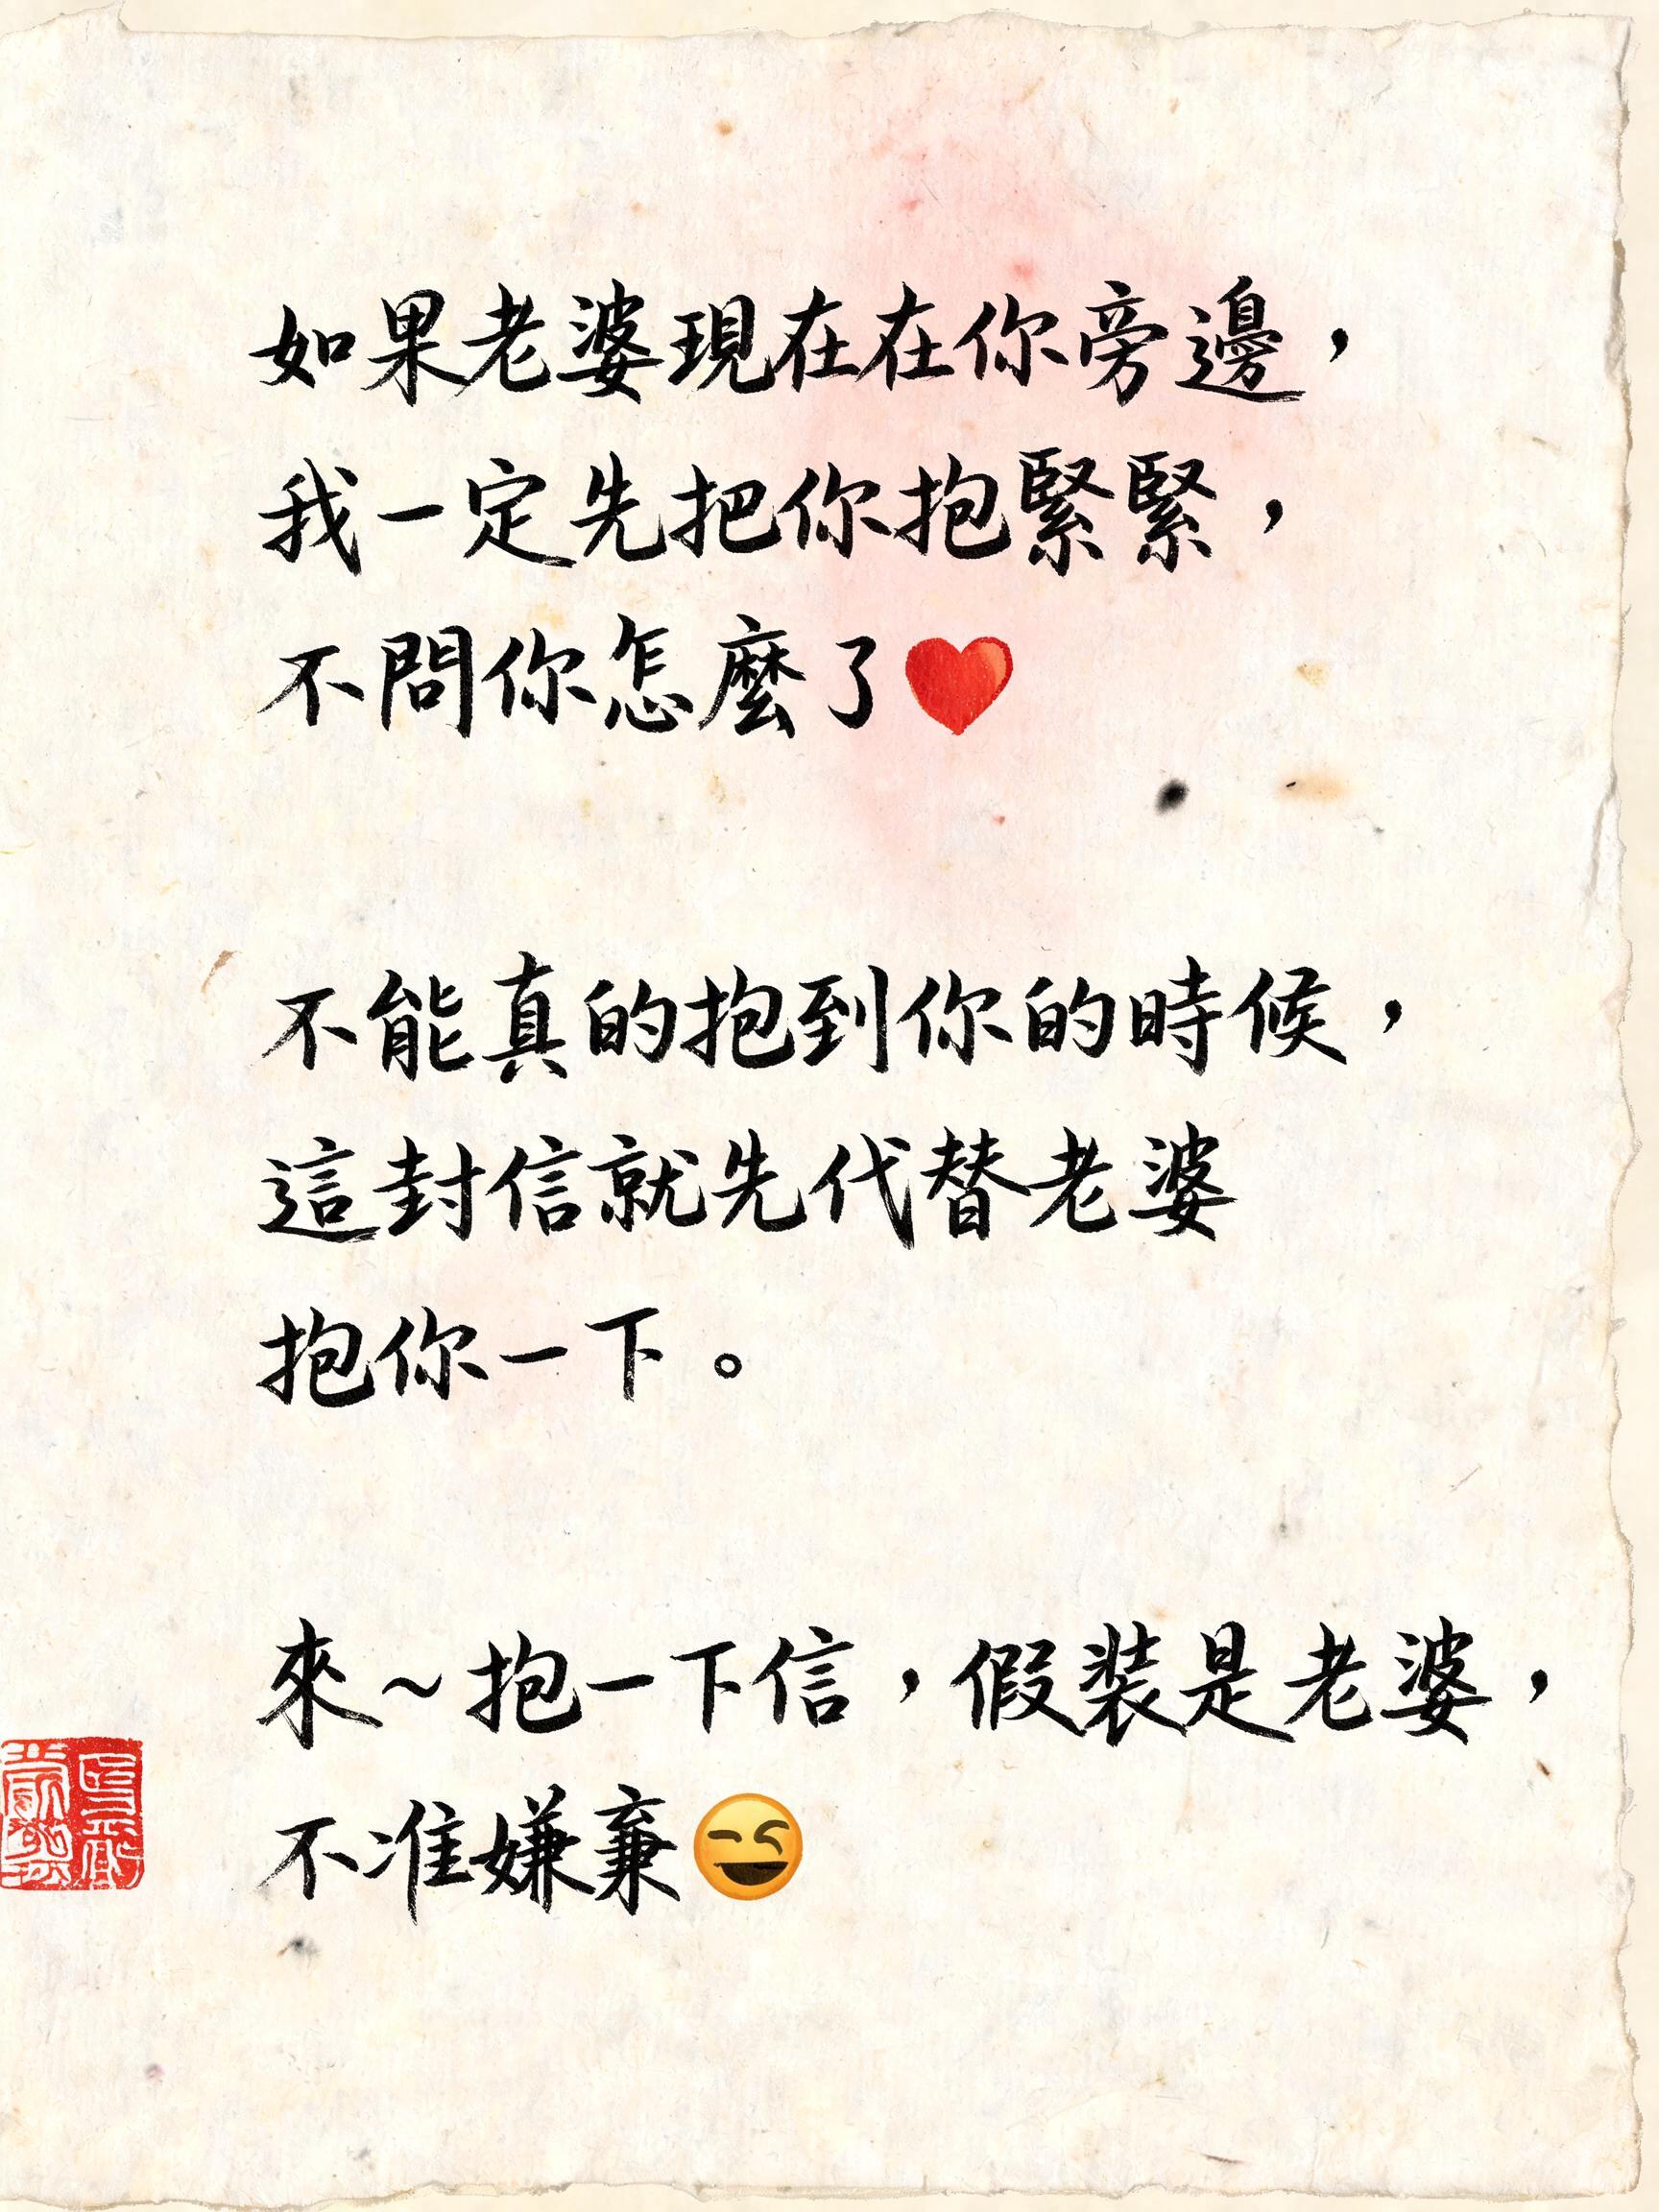 如果老婆現在在你旁邊，
我一定先把你抱緊緊，
不問你怎麼了❤️
不能真的抱到你的時候，
這封信就先代替老婆
抱你一下。
來～抱一下信，假裝是老婆，
不准嫌棄😆